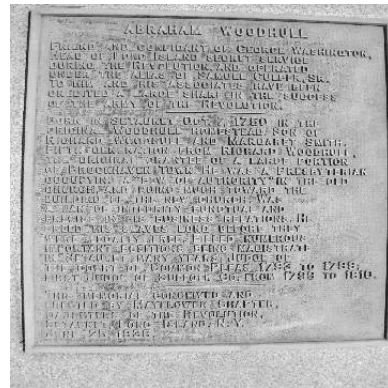 ABRAHAM WOODHULL
FRIEND AND CONFIDANT OF GEORGE WASHINGTON,
HEAD OF LONG ISLAND SECRET SERVICE
DURING THE REVOLUTION, AND OPERATED
UNDER THE ALIAS OF SAMUEL CULPER, SR.
TO HIM AND HIS ASSOCIATES HAVE BEEN
CREDITED A LARGE SHARE OF THE SUCCESS
OF THE ARMY OF THE REVOLUTION.
BORN IN SETAUKET OCT. 7, 1750 IN THE
ORIGINAL WOODHULL HOMESTEAD, SON OF
RICHARD WOODHULL AND MARGARET SMITH.
FIFTH GENERATION FROM RICHARD WOODHULL,
THE ORIGINAL GRANTEE OF A LARGE PORTION
OF BROOKHAVEN TOWN. HE WAS A PRESBYTERIAN
OCCUPYING A PEW OF AUTHORITY IN THE OLD
CHURCH, AND DOING MUCH TOWARD THE
BUILDING OF THE NEW CHURCH. WAS
A MAN OF INTEGRITY PUNCTUAL AND
PRECISE IN HIS BUSINESS RELATIONS. HE
FREED HIS SLAVES LONG BEFORE THEY
WERE LEGALLY FREE. FILLED NUMEROUS
IMPORTANT POSITIONS, BEING MAGISTRATE
IN SETAUKET MANY YEARS, JUDGE OF
THE COURT OF COMMON PLEAS, 1793 TO 1799,
FIRST JUDGE OF SUFFOLK CO. FROM 1799 TO 1810.
THIS MEMORIAL CONCEIVED AND
ERECTED BY MAYFLOWER CHAPTER,
DAUGHTERS OF THE REVOLUTION,
SETAUKET, LONG ISLAND, N.Y.
1936.